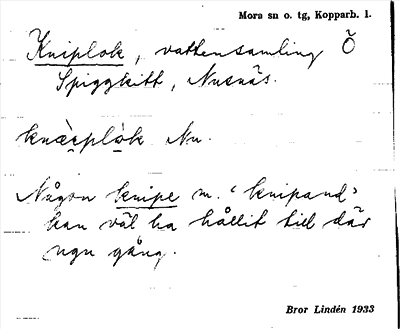 Mora sn o. tg, Kopparb. l.
Kniplok, vattensamling Ö
Spiggkitt, Nusnäs.
knæ̀ɛplòk Nu.
Någon knipe m. 'knipand'
kan väl ha hållit till där
ngn gång.
Bror Lindén 1933